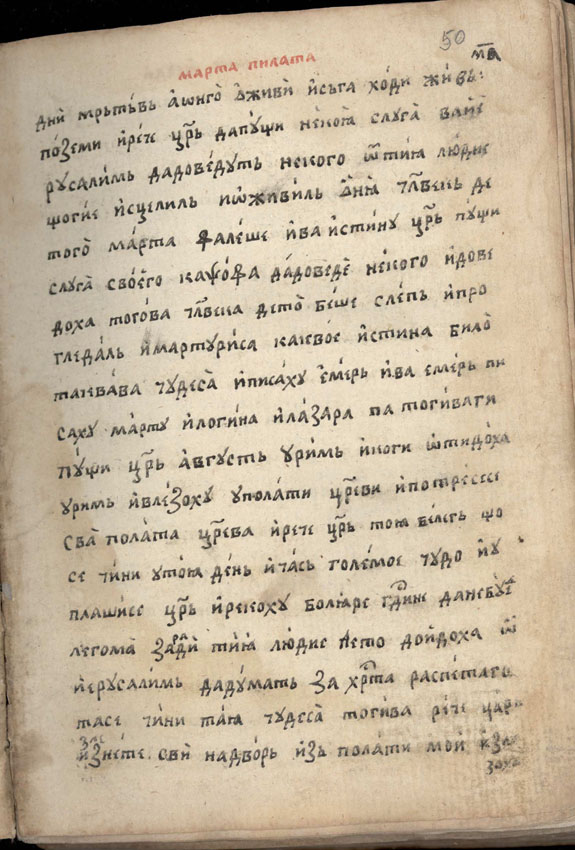 50
м҃а
марта пилата
дн҄и мрьтьвь а҆ѡнго ѡ҆живи и҆сьга ходи живь:
поземи и҆рече цр҃ь дапꙋщи некоꙗ слꙋга ваие
рꙋсалимь дадоведꙋть некого ѿтиꙗ людие
щогие и҆сцелиль иѡживиль ѡ҆ниꙗ чл҃векь де
того марта фалеше и҆ва и҆стинꙋ цр҃ь пꙋщи
слꙋга своего каѱофа дадоведе некого и҆дове
доха тогова чл҃века дето беше слепь и҆про
гледаль и҆мартꙋриса каквое и҆стина било
таквава чꙋдеса и҆писахꙋ емерь и҆ва емерь пи
сахꙋ мартꙋ и҆логина и҆лазара па тогиваги
пꙋщи цр҃ь а҆вгꙋсть ꙋримь и҆коги ѿтидоха
ꙋримь и҆влезохꙋ ꙋполати цр҃еви и҆потресесе
сва полата цр҃ева и҆рече цр҃ь тоꙗ белегь що
се чини ꙋтоꙗ день и҆часъ големое чꙋдо и҆ꙋ
плашисе цр҃ь и҆рекохꙋ болꙗре гд҃ине даневꙋе
легома заради тиꙗ людие дето дойдоха ѿ
и҆ерꙋсалимь дадꙋмать за хр҃та распетаго
тасе чини таꙗ чꙋдеса тогива рече царь
и҆знете сви надворь и҆зь полати мои и҆зле
зохꙋ